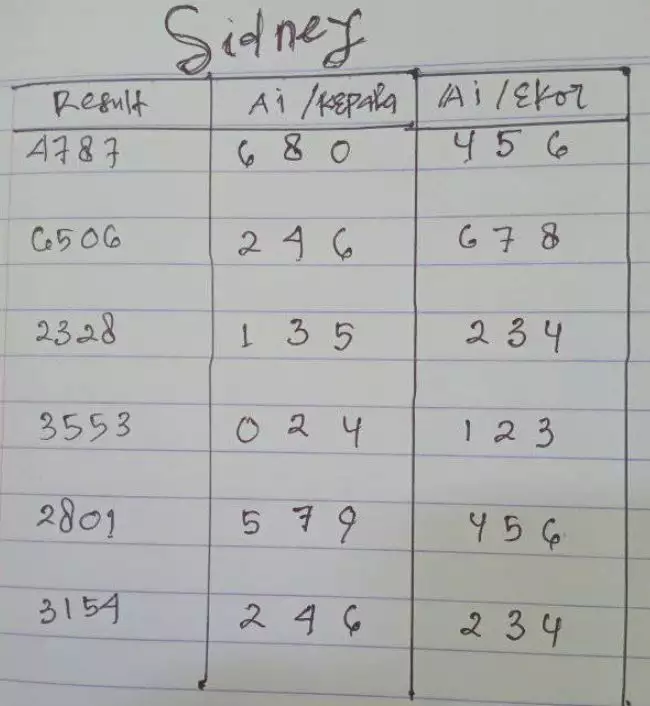 Sidney
Result Ai/Kepala Ai/Ekor
4787 6 8 0 4 5 6
6506 2 4 6 6 7 8
2328 1 3 5 2 3 4
3553 0 2 4 1 2 3
2801 5 7 9 4 5 6
3154 2 4 6 2 3 4